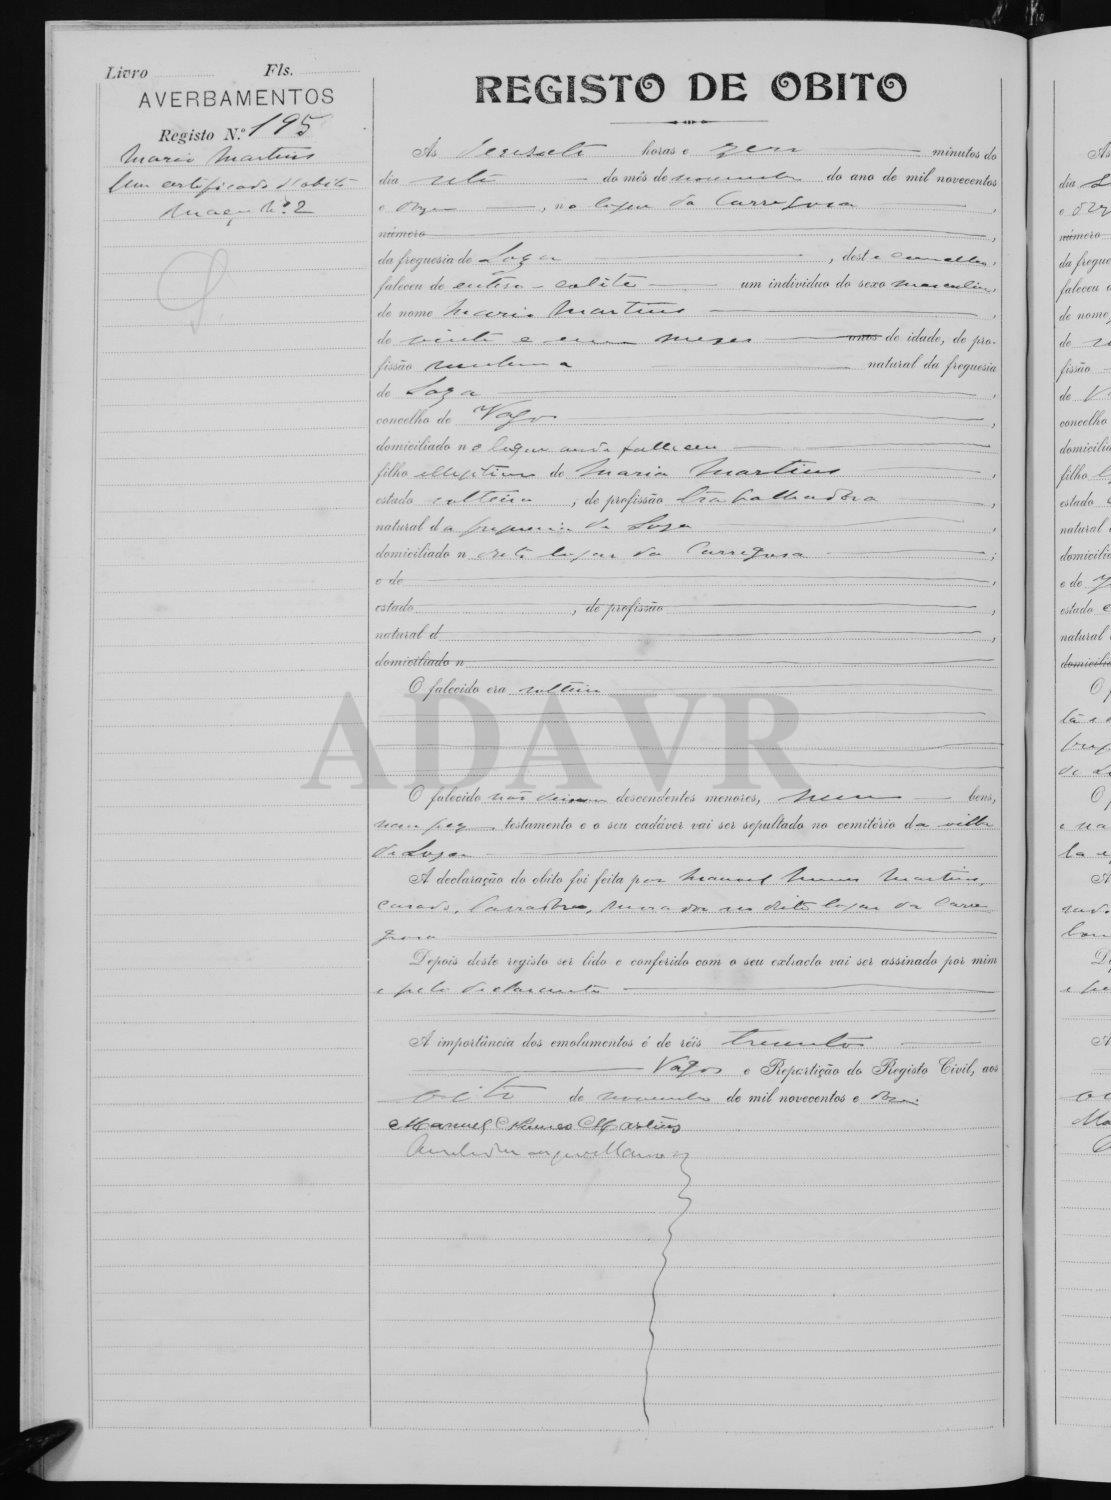 Livro Fls.
AVERBAMENTOS
Registo N.º 195
Mario Martins
Um certificado d'obito
Maço N.º 2
REGISTO DE OBITO
Ás dezesete horas e zero minutos do
dia sete do mês de novembro do ano de mil novecentos
e onze, no logar da Carregosa,
número
da freguesia de Soza, deste concelho,
faleceu de entero-colite um individuo do sexo masculino,
de nome Mario Martins,
de vinte e um mezes anos de idade, de pro-
fissão nenhuma natural da freguesia
de Soza,
concelho de Vagos,
domiciliado no logar onde falleceu
filho illegitimo de Maria Martins,
estado solteira, de profissão trabalhadora,
natural da freguesia de Soza,
domiciliado n dito logar da Carregosa;
e de,
estado, de profissão,
natural d,
domiciliado n
O falecido era solteiro
ADAVR
O falecido não deixou descendentes menores, nem bens,
nem fez testamento e o seu cadáver vai ser sepultado no cemitério da villa
de Soza
A declaração do obito foi feita por Manoel Nunes Martins,
casado, lavrador, morador no dito logar da Carre-
gosa
Depois deste registo ser lido e conferido com o seu extracto vai ser assinado por mim
e pelo declarante
A importância dos emolumentos é de réis trezentos
Vagos e Repartição do Registo Civil, aos
oito de novembro de mil novecentos e onze
Manuel Nunes Martins